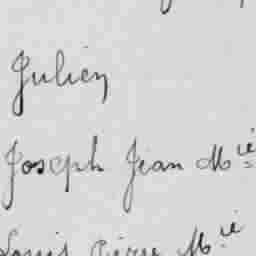 Julien
Joseph Jean Mie
Louis Pierre Mie